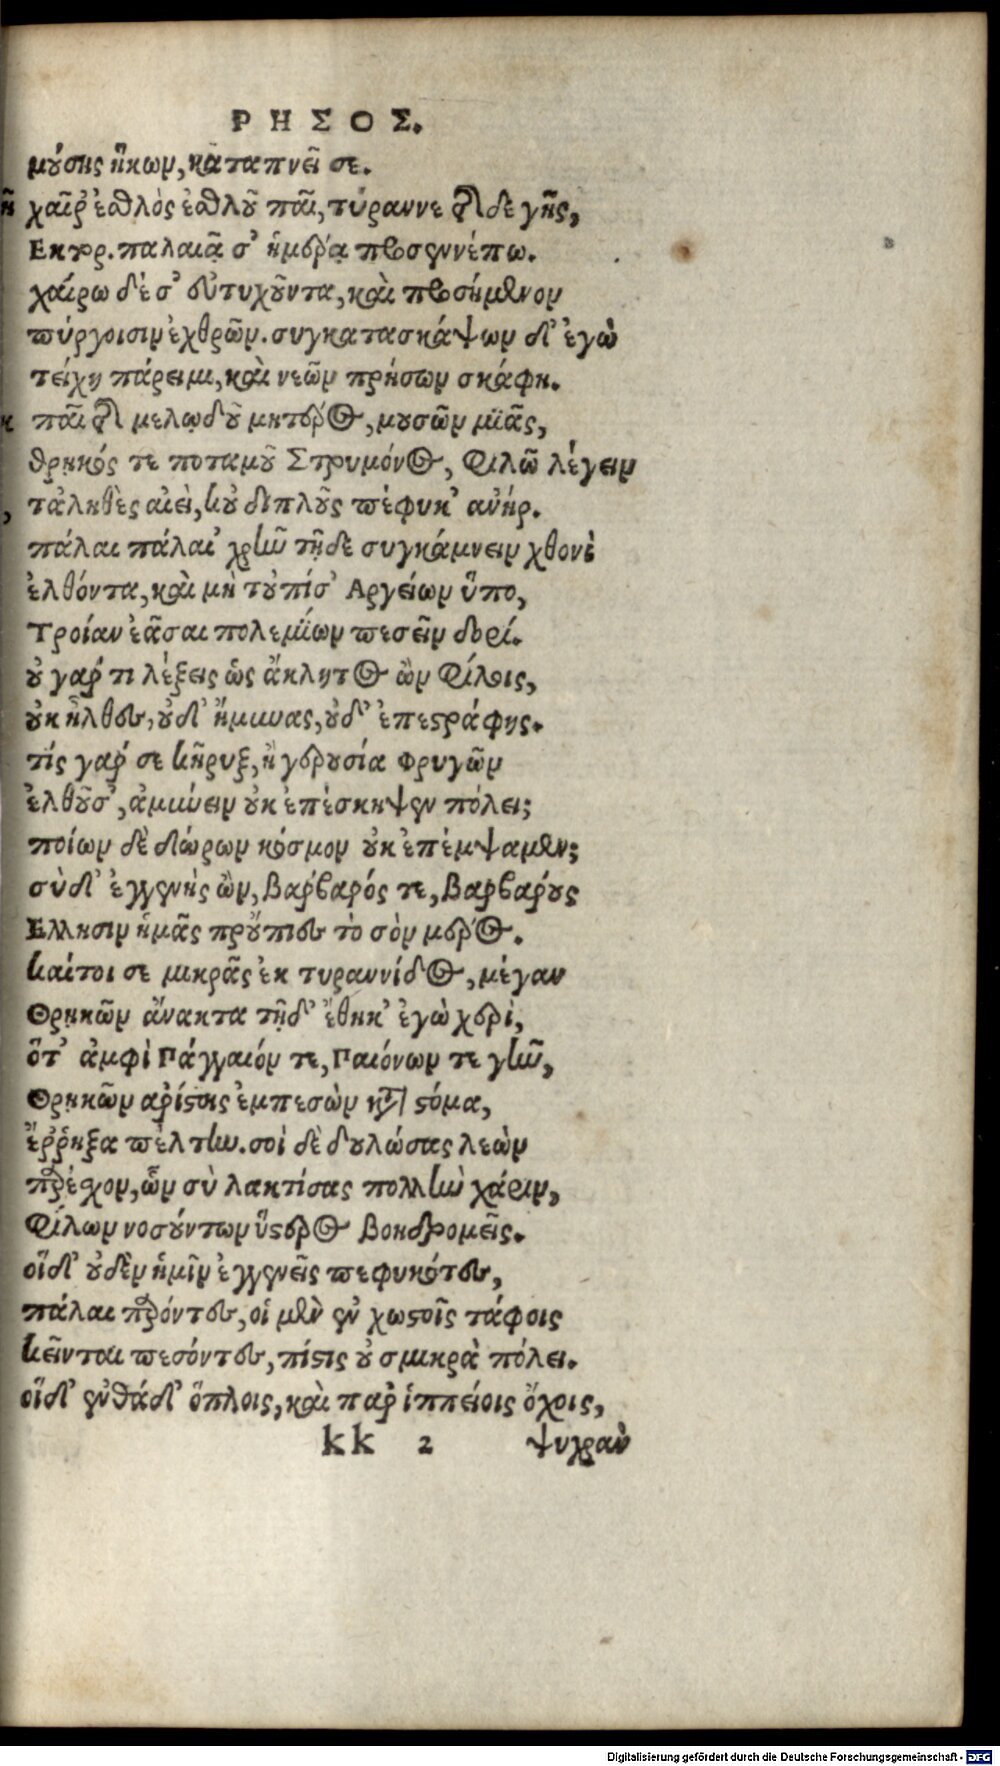 ΡΗΣΟΣ.
μούσης ἥκων, καταπνεῖ σε.
χαῖρ' ἐσθλὸς ἐσθλοῦ παῖ, τύραννε τῆσδε γῆς,
Εκτορ. παλαιᾷ σ' ἡμέρᾳ προσεννέπω.
χαίρω δέ σ' εὐτυχοῦντα, καὶ προσήμενον
πύργοισιν ἐχθρῶν. συγκατασκάψων δ' ἐγὼ
τείχη πάρειμι, καὶ νεῶν πρήσων σκάφη.
παῖ τῆς μελῳδοῦ μητέρος, μουσῶν μιᾶς,
θρῃκός τε ποταμοῦ Στρυμόνος, φιλῶ λέγειν
τἀληθὲς αἰεὶ, κοὐ διπλοῦς πέφυκ' ἀνήρ.
πάλαι πάλαι χρῆν τῇδε συγκάμνειν χθονὶ
ἐλθόντα, καὶ μὴ τοὐπίσ' Αργείων ὕπο,
Τροίαν ἐᾶσαι πολεμίων πεσεῖν δορί.
οὐ γάρ τι λέξεις ὡς ἄκλητος ὢν φίλοις,
οὐκ ἦλθες, οὐδ' ἤμυνας, οὐδ' ἐπεστράφης.
τίς γάρ σε κῆρυξ, ἢ γερουσία Φρυγῶν
ἐλθοῦσ', ἀμύνειν οὐκ ἐπέσκηψεν πόλει;
ποίων δὲ δώρων κόσμον οὐκ ἐπέμψαμεν;
σὺ δ' ἐγγενὴς ὢν, βάρβαρός τε, βαρβάρους
Ελλησιν ἡμᾶς προὔπιες τὸ σὸν μέρος.
καίτοι σε μικρᾶς ἐκ τυραννίδος, μέγαν
Θρῃκῶν ἄνακτα τῇδ' ἔθηκ' ἐγὼ χερὶ,
ὅτ' ἀμφὶ Πάγγαιόν τε, Παιόνων τε γῆν,
Θρῃκῶν ἀρίστοις ἐμπεσὼν κατὰ στόμα,
ἔῤῥηξα πέλτην. σοὶ δὲ δουλώσας λεὼν
παρέσχον, ὧν σὺ λακτίσας πολλὴν χάριν,
φίλων νοσούντων ὕστερος βοηδρομεῖς.
οἵδ' οὐδὲν ἡμῖν ἐγγενεῖς πεφυκότες,
πάλαι παρόντες, οἱ μὲν ἐν χωστοῖς τάφοις
κεῖνται πεσόντες, πίστις οὐ σμικρὰ πόλει.
οἵδ' ἐνθάδ' ὅπλοις, καὶ παρ' ἱππείοις ὄχοις,
kk 2 ψυχρὰν